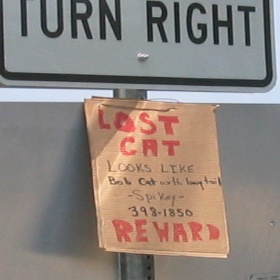 TURN RIGHT
LOST
CAT
LOOKS LIKE
Bob Cat with long tail
- Spikey -
398-1850
REWARD